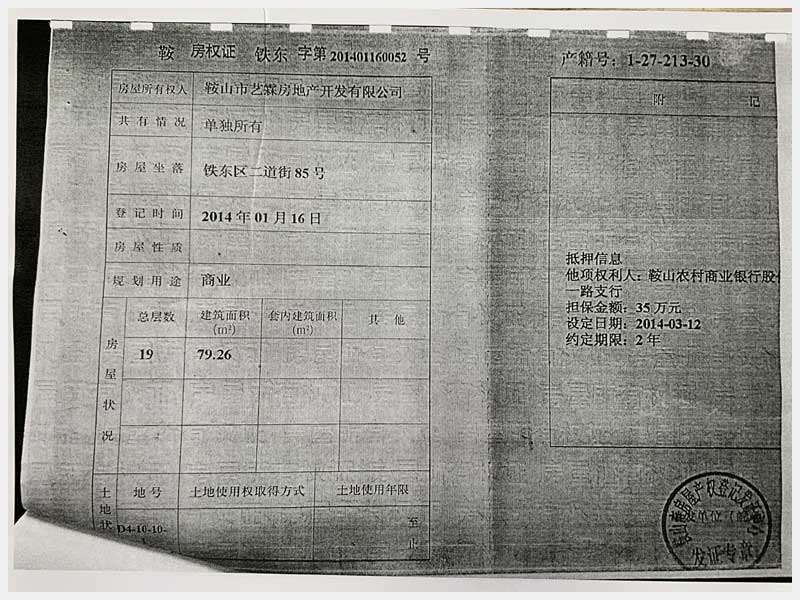 鞍 房权证 铁东 字第 201401160052 号
房屋所有权人 鞍山市艺霖房地产开发有限公司
共有情况 单独所有
房屋坐落 铁东区二道街85号
登记时间 2014年01月16日
房屋性质
规划用途 商业
房屋状况
总层数 建筑面积(m²) 套内建筑面积(m²) 其他
19 79.26
土地状
地号 土地使用权取得方式 土地使用年限
D4-10-10-
1
至
止
产籍号：1-27-213-30
附 记
抵押信息
他项权利人：鞍山农村商业银行股份
一路支行
担保金额：35万元
设定日期：2014-03-12
约定期限：2 年
发证单位
发证专